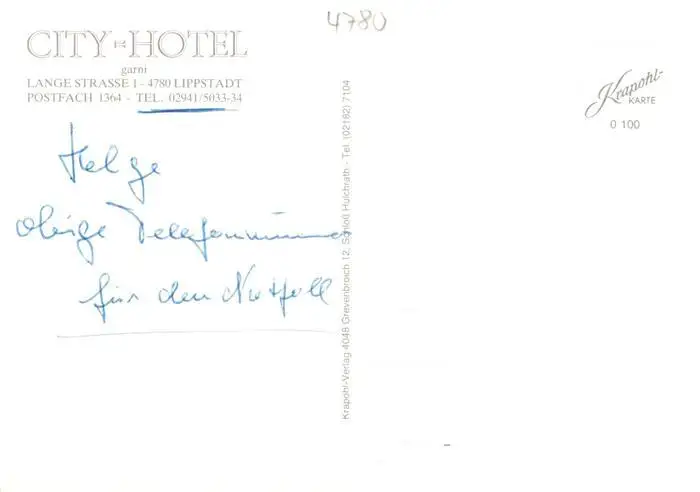 4780
CITY-HOTEL
garni
LANGE STRASSE 1 - 4780 LIPPSTADT
POSTFACH 1364 - TEL. 02941/5033-34
Helge
obige Telefonnummer
für den Notfall
Krapohl-Verlag 4048 Grevenbroich 12, Schloß Hülchrath - Tel. (02182) 7104
Krapohl-
KARTE
0 100